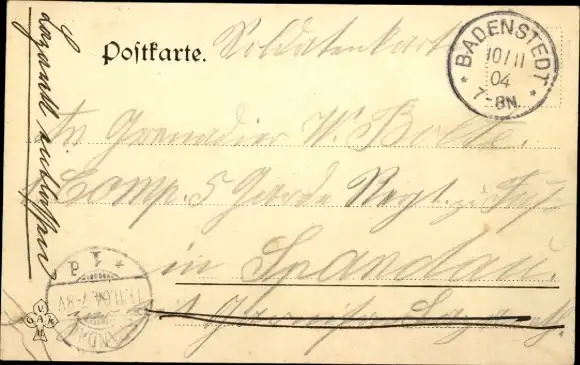 Postkarte. Soldatenkarte
BADENSTEDT
10/11
04
7-8N.
An Grenadier W. Bolte.
Comp. 5 Garde Regt. z. Fuß
in Spandau.
Garnison Lazareth.
Lazareth entlassen
11.11.04. 7-8V